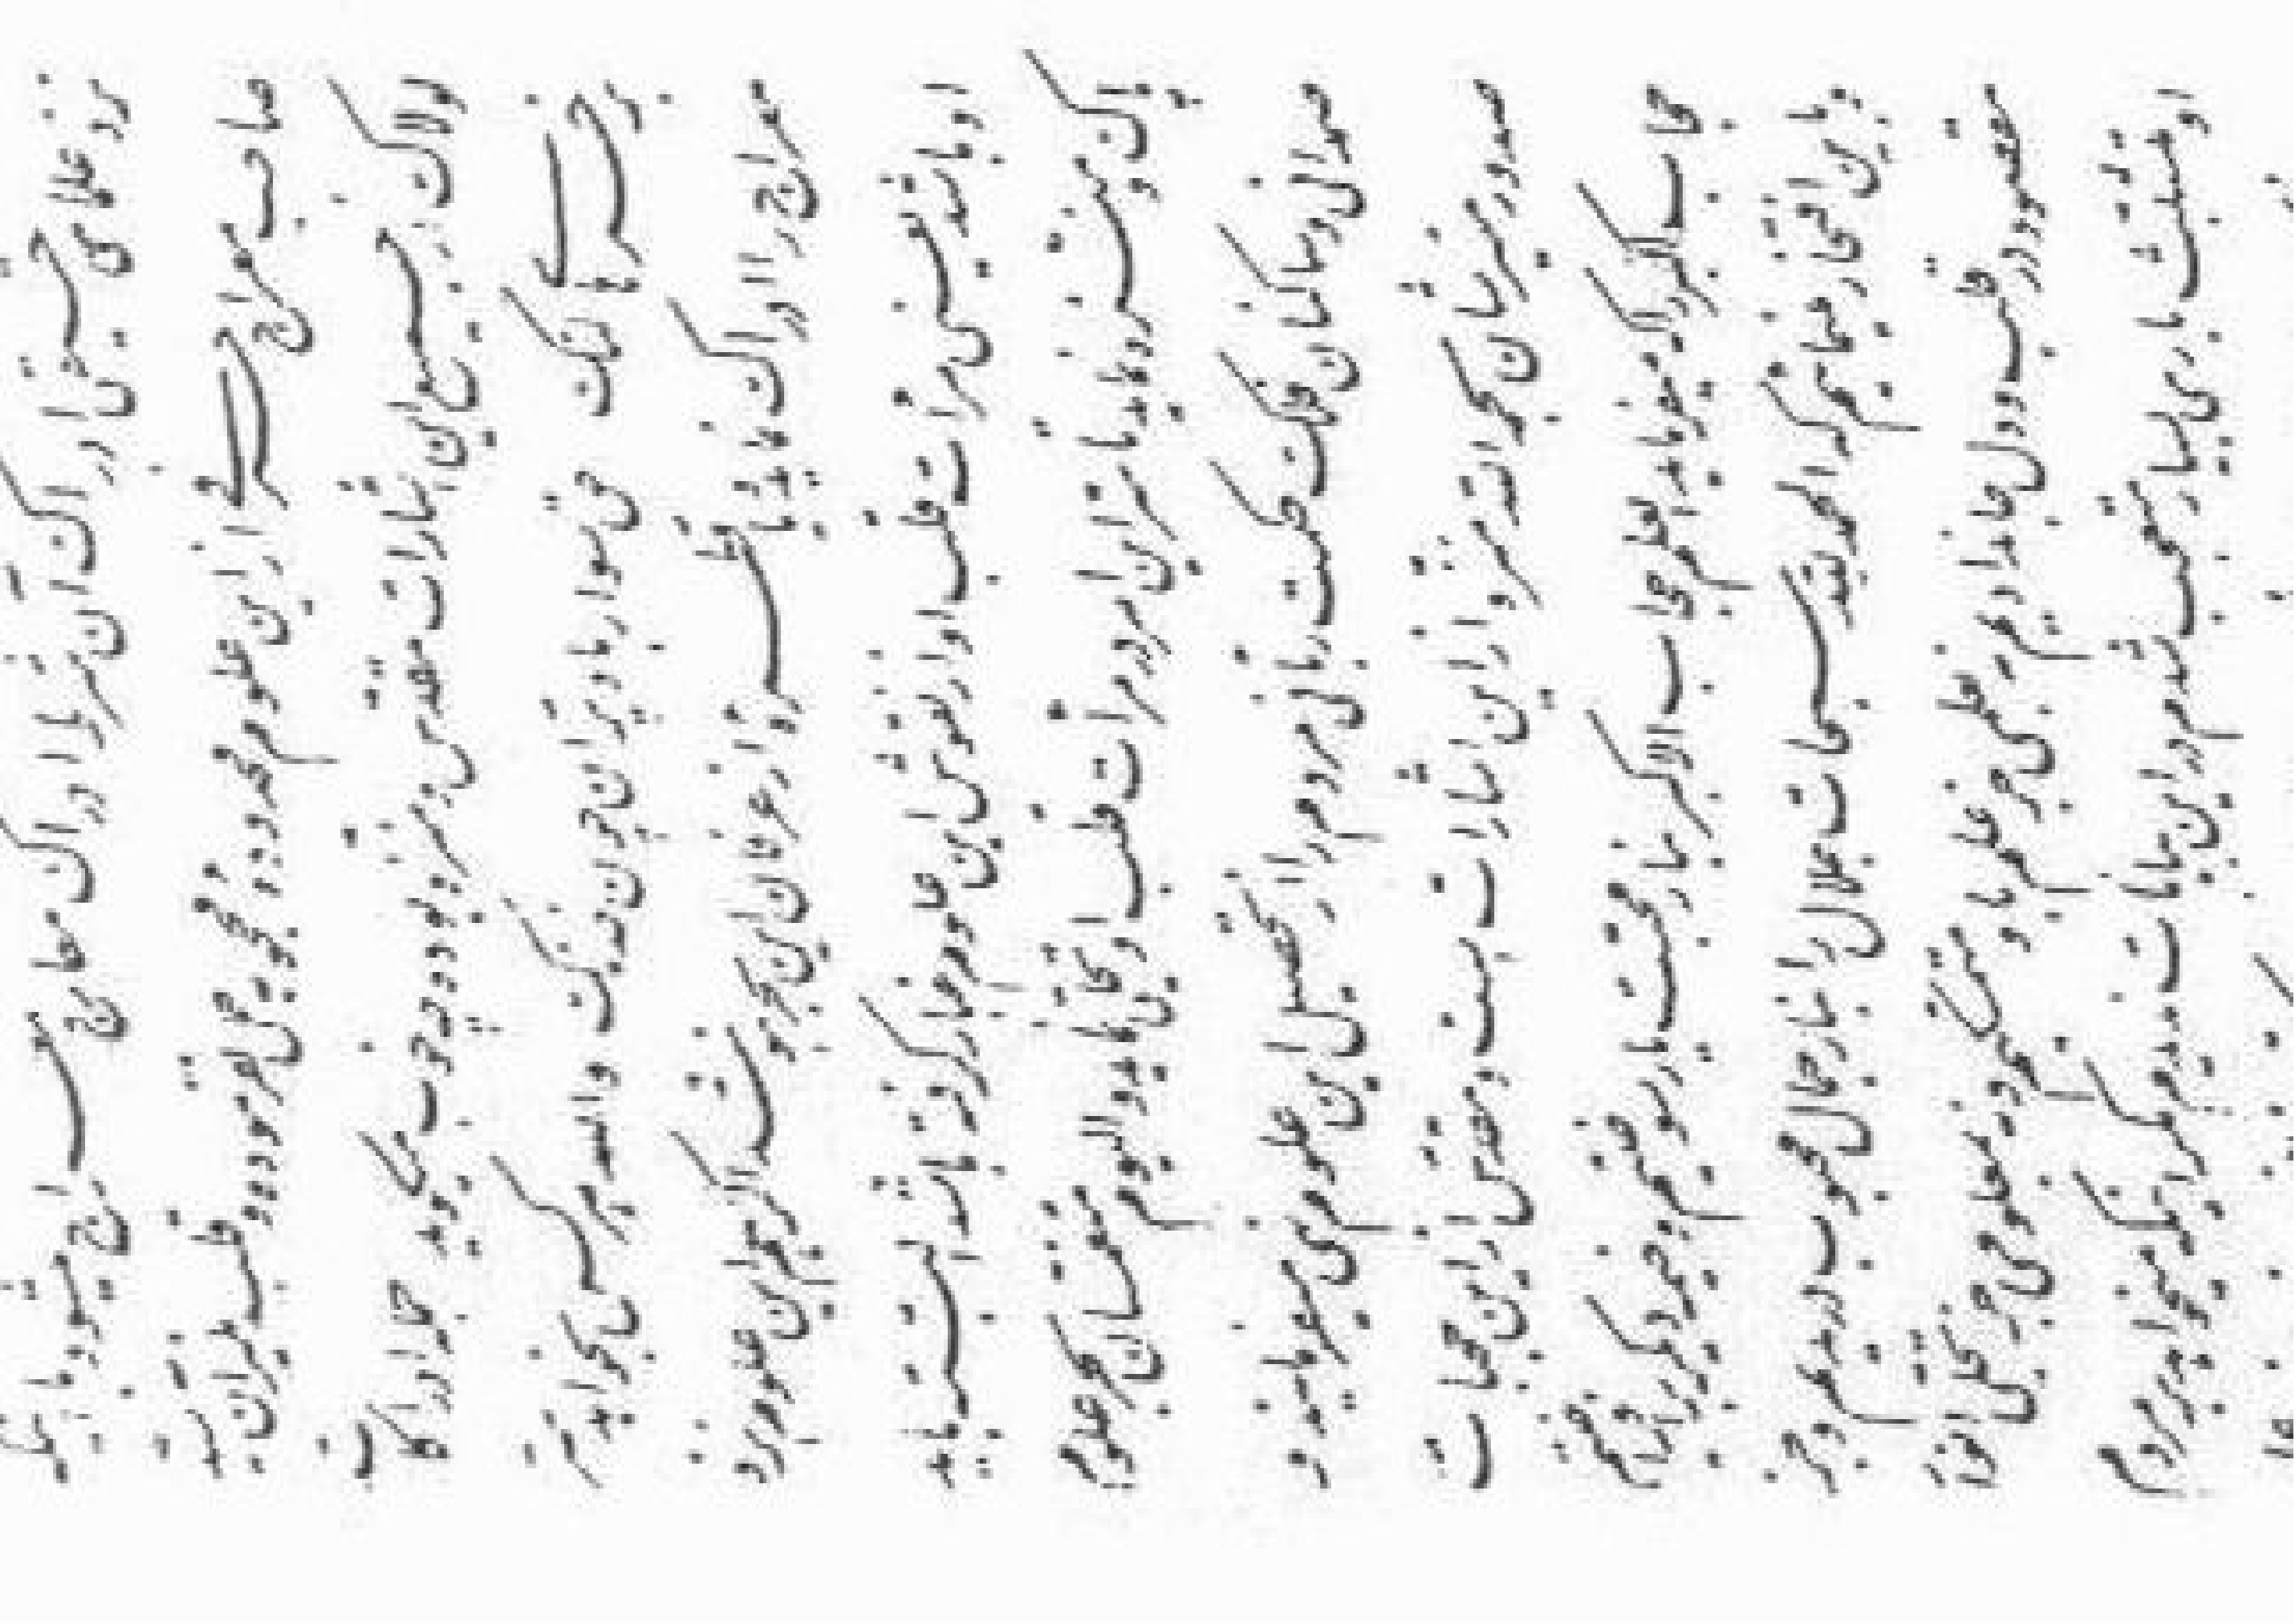 نزد علمای حقیقی ادراک آن شرط ادراک معارج معراج میشود با اینکه
صاحب معراج حرفی از این علوم محدوده محجوبه نفرموده و قلب منیر آن سید
لولاک از جمیع این اشارات مقدس و منزه بوده و چه خوب میگوید جمله ادراکات
بر خرهای لنگ حق سوار باد پران چون خدنگ والله هر کس بخواهد سر
معراج را ادراک نماید و یا قطره از عرفان این بحر بنوشد اگر هم این علوم نزد
او باشد یعنی مرآت قلب او از نقوش این علوم غبار گرفته باشد البته باید
پاک و منزه نماید تا سر این امر در مرآت قلب او تجلی نماید و الیوم متغمسان بحر علوم
صمدانی و ساکنان فلک حکمت ربانی مردم را از تحصیل این علوم نهی میفرمایند و
صدور منیرشان بحمد الله منزه از این اشارات است و مقدس از این حجبات
حجاب اکبر را که میفرماید العلم حجاب الاکبر بنار محبت یار سوختیم و خیمه دیگر برافراختیم
و باین افتخار مینمائیم که الحمد لله سبحات جلال را بنار جمال محبوب سوختیم و جز
مقصود در قلب و دل جا ندادیم نه بعلمی جز علم باو متمسکیم و نه بمعلومی جز تجلی انوار
او متشبث باری بسیار متعجب شدم در این بیانات ندیدم مگر اینکه میخواهد بر مردم